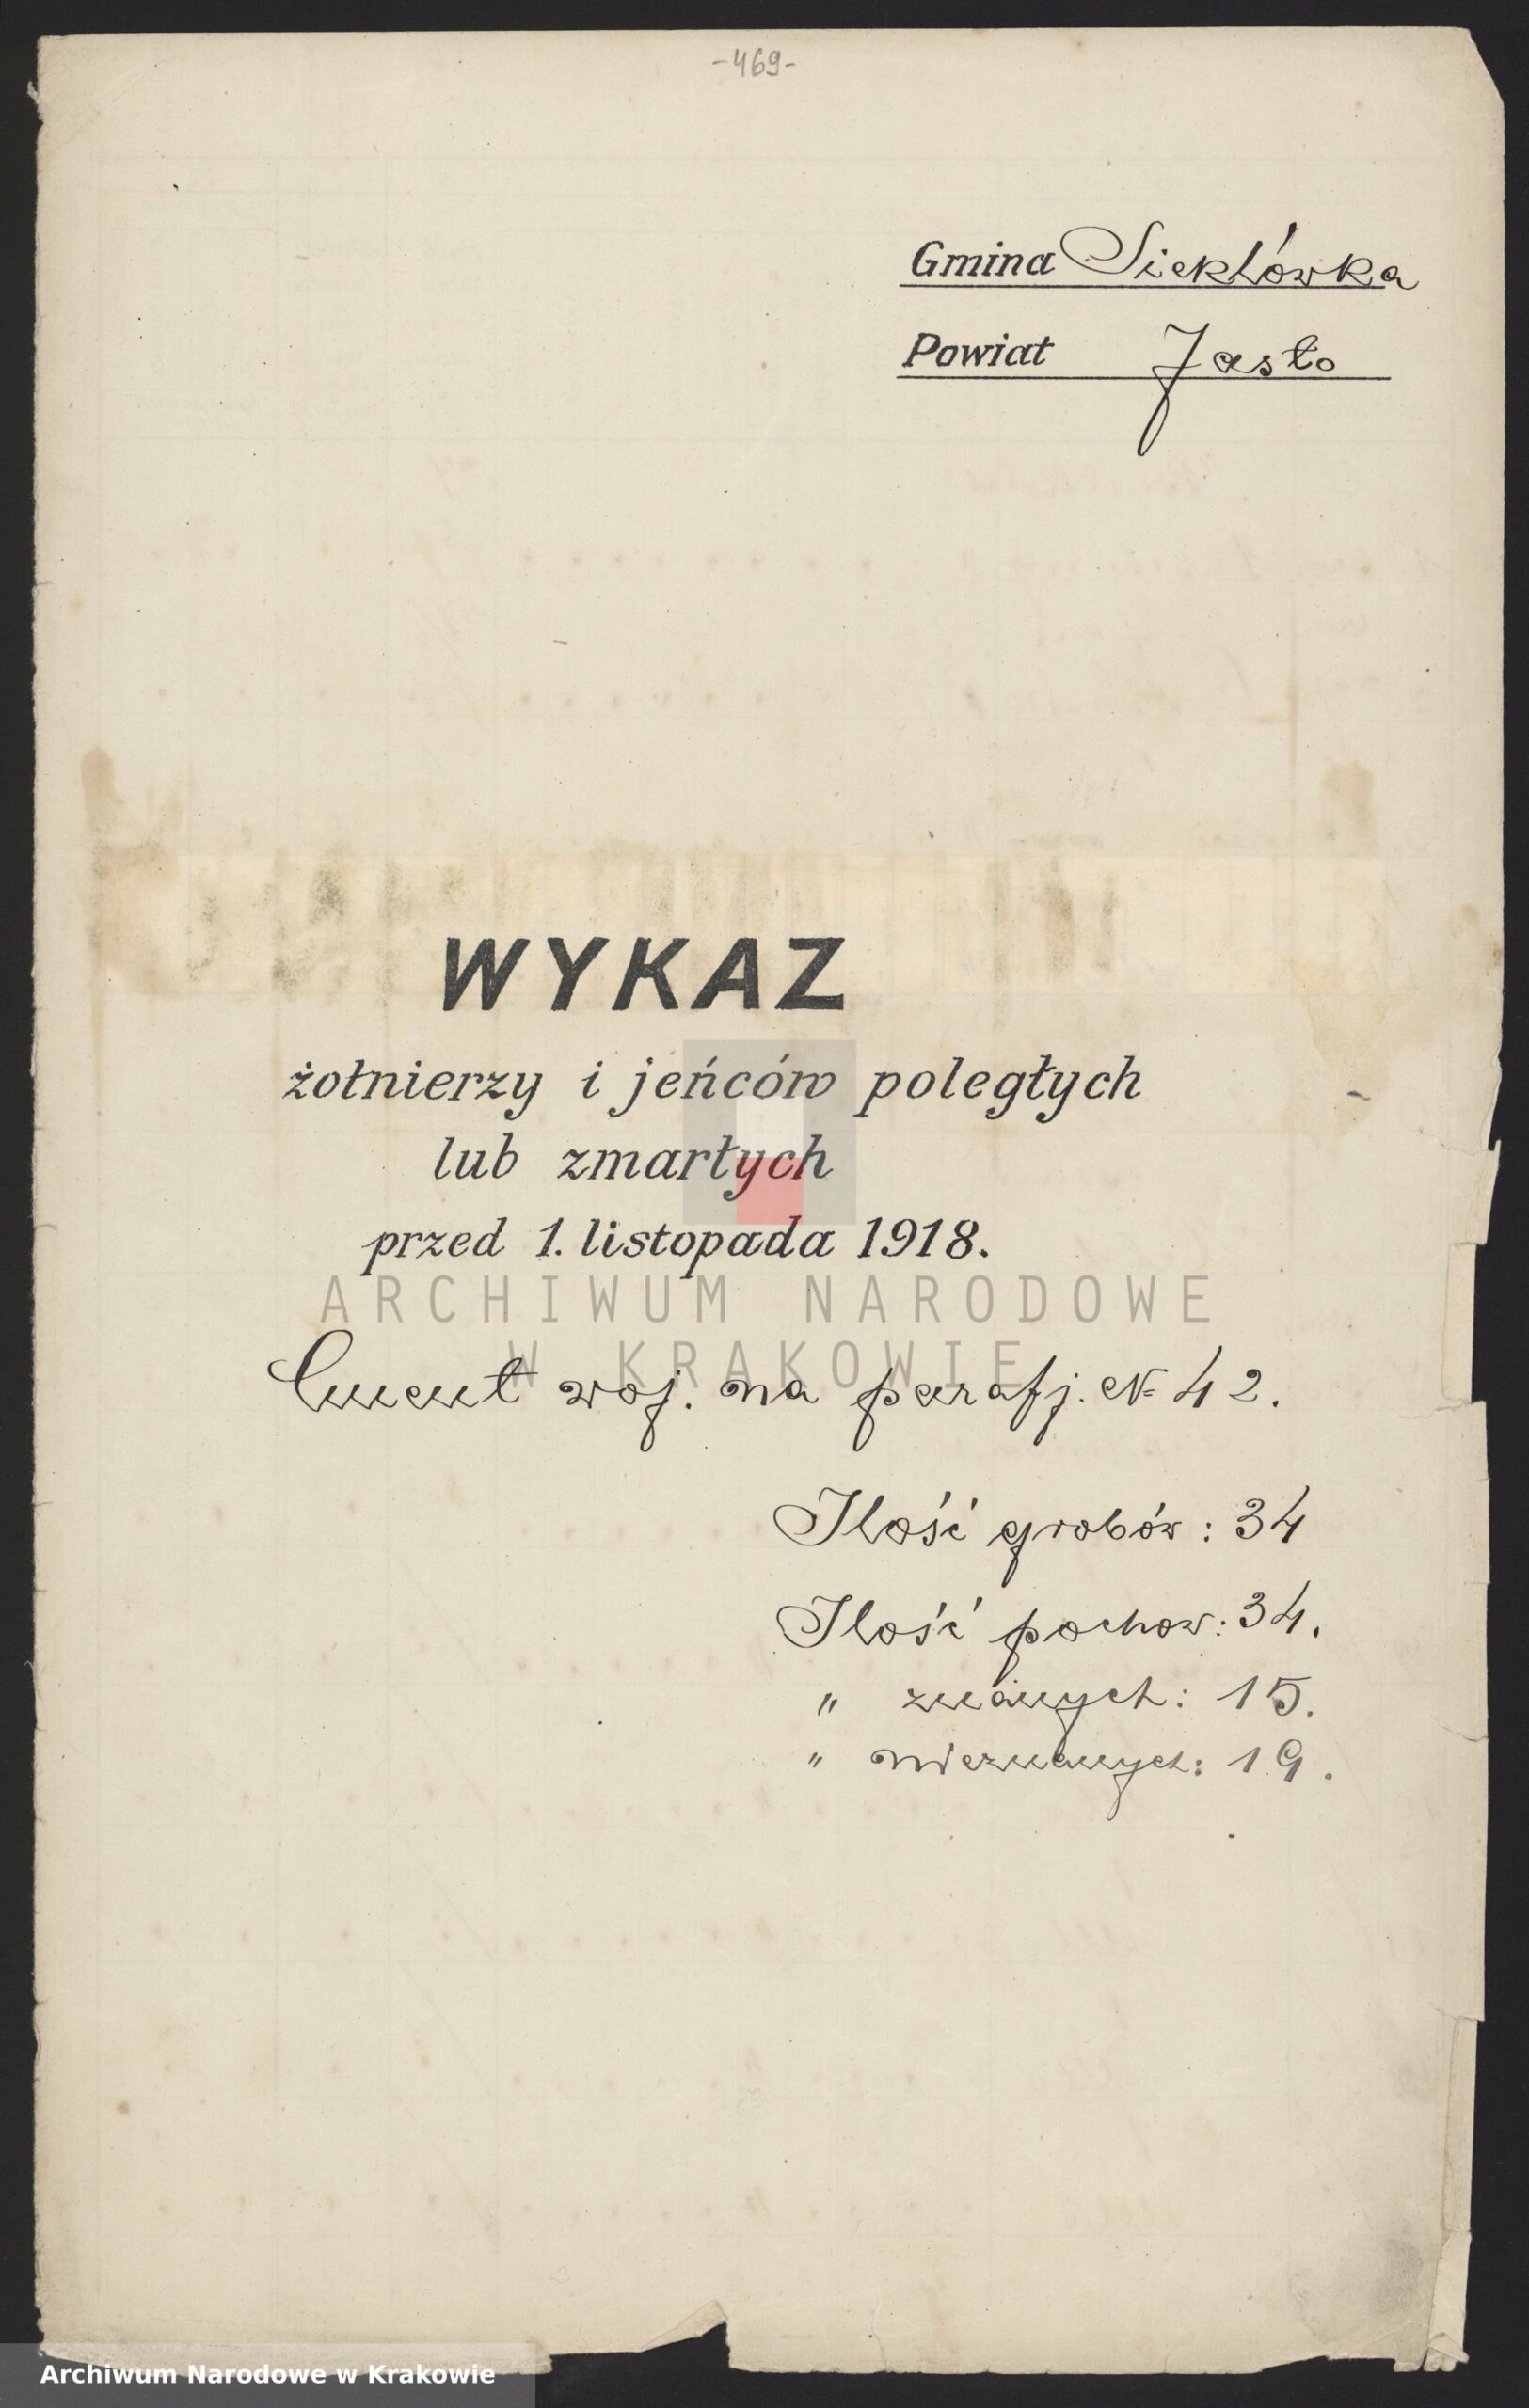 -469-
Gmina Siekłówka
Powiat Jasło
WYKAZ
żołnierzy i jeńców poległych
lub zmarłych
przed 1. listopada 1918.
ARCHIWUM NARODOWE
W KRAKOWIE
Cment woj. na parafj. № 42.
Ilość grobów: 34
Ilość pochow: 34.
" znanych: 15.
" nieznanych: 19.
Archiwum Narodowe w Krakowie